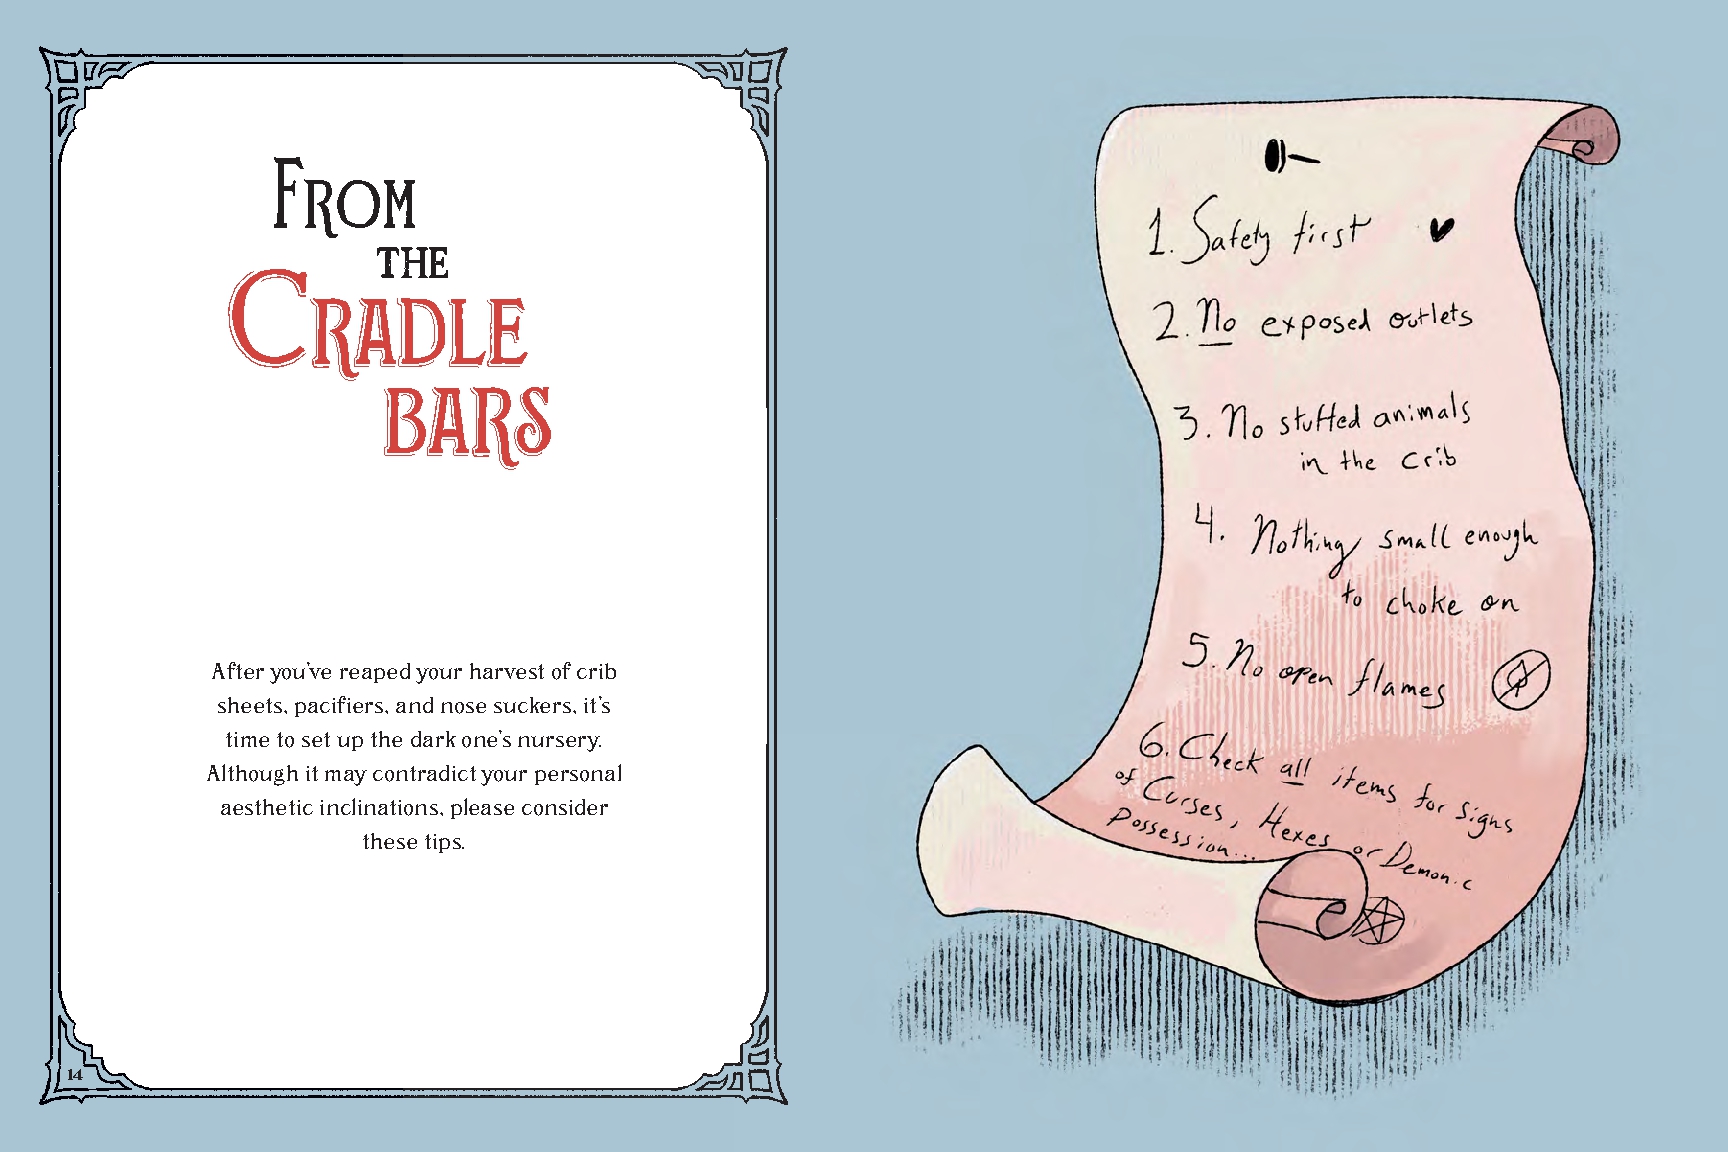 From
the
Cradle
bars
After you've reaped your harvest of crib
sheets, pacifiers, and nose suckers, it's
time to set up the dark one's nursery.
Although it may contradict your personal
aesthetic inclinations, please consider
these tips.
14
1. Safety first
2. No exposed outlets
3. No stuffed animals
in the crib
4. Nothing small enough
to choke on
5. No open flames
6. Check all items for signs
of Curses, Hexes or Demonic
Possession...